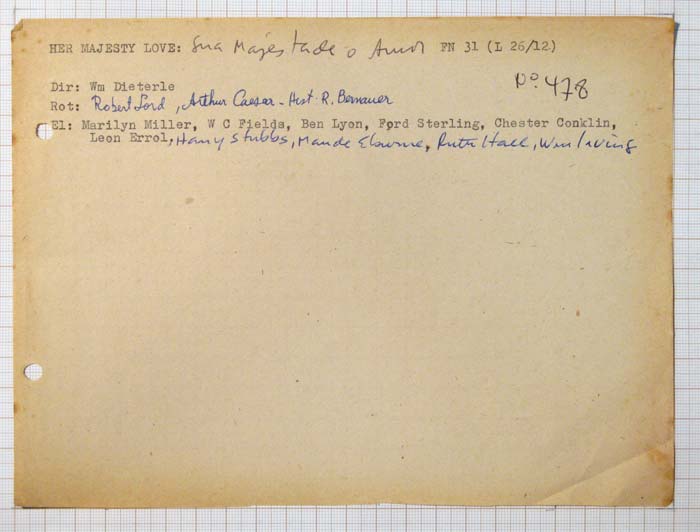 HER MAJESTY LOVE: Sua Majestade o Amor FN 31 (L 26/12)
Nº 478
Dir: Wm Dieterle
Rot: Robert Lord, Arthur Caesar - Hist. R. Bernauer
El: Marilyn Miller, W C Fields, Ben Lyon, Ford Sterling, Chester Conklin,
Leon Errol, Harry Stubbs, Maude Eburne, Ruth Hall, Wm Irving